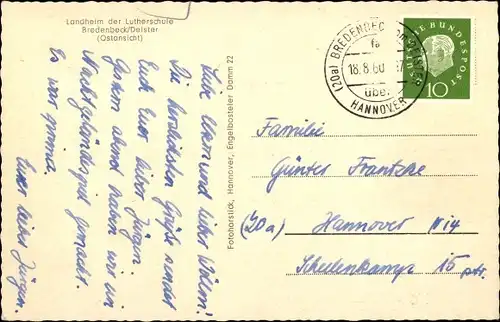 Landheim der Lutherschule
Bredenbeck/Deister
(Ostansicht)
Liebe Eltern und lieber
Die herzlichsten Grüße sendet
Euch Euer lieber Jürgen.
Gestern abend haben wir ein
Nachtgeländespiel gemacht.
Es war prima.
Euer lieber Jürgen.
Fotohorslick, Hannover, Engelbosteler Damm 22
(20a) BREDENBECK
18.8.60
über
HANNOVER
DEUTSCHE BUNDESPOST
10
Familie
Günter Frantzke
(20a) Hannover N14
Scheelenkamp 15 ptr.